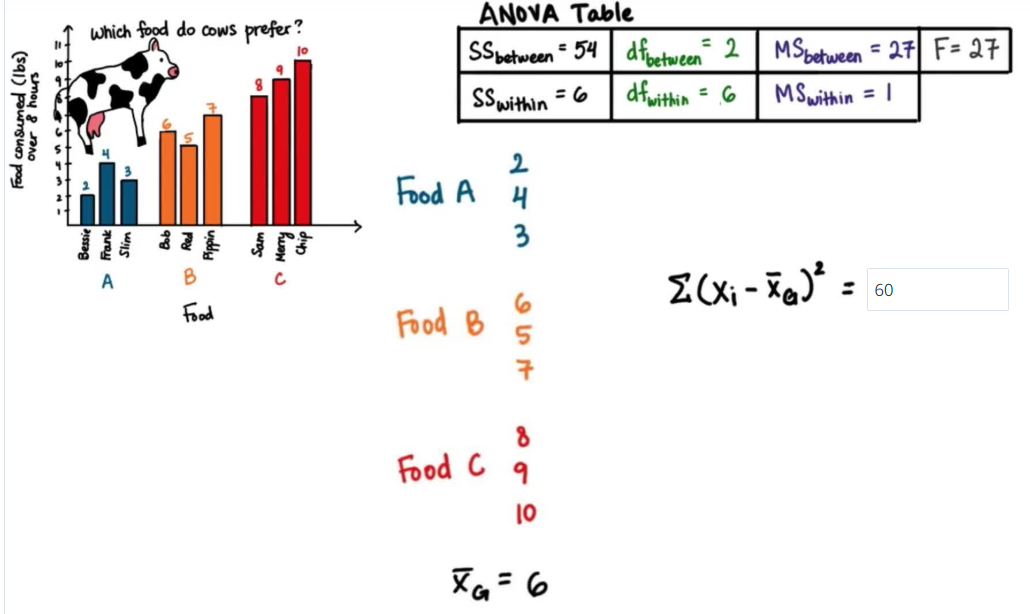 Which food do cows prefer?
Food consumed (lbs)
over 8 hours
11
10
9
8
7
6
5
4
3
2
1
2
4
3
6
5
7
8
9
10
Bessie
Frank
Slim
Bob
Red
Pippin
Sam
Merry
Chip
A
B
C
Food
ANOVA Table
SSbetween = 54 dfbetween = 2 MSbetween = 27 F = 27
SSwithin = 6 dfwithin = 6 MSwithin = 1
Food A
2
4
3
Food B
6
5
7
Food C
8
9
10
x̄G = 6
Σ(xi - x̄G)² = 60